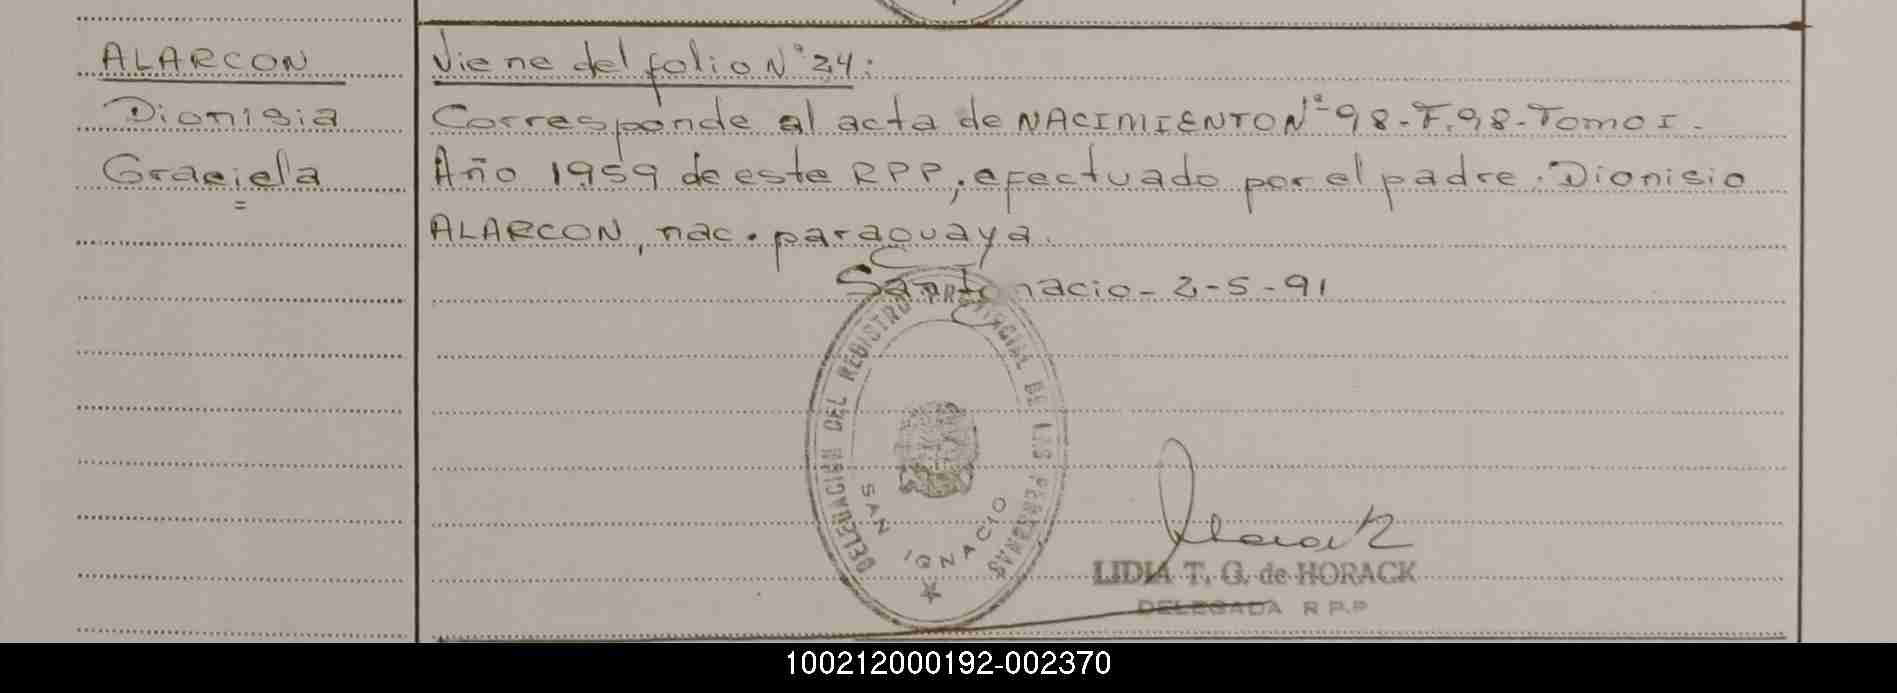 ALARCON
Dionisia
Graciela
Viene del folio N° 24:
Corresponde al acta de NACIMIENTO Nº 98-F.98-Tomo I.
Año 1959 de este RPP, efectuado por el padre: Dionisio
ALARCON, nac. paraguaya.
San Ignacio - 2-5-91
DELEGACION DEL REGISTRO PROVINCIAL DE LAS PERSONAS
SAN IGNACIO
LIDIA T. G. de HORACK
DELEGADA R P.P
100212000192-002370